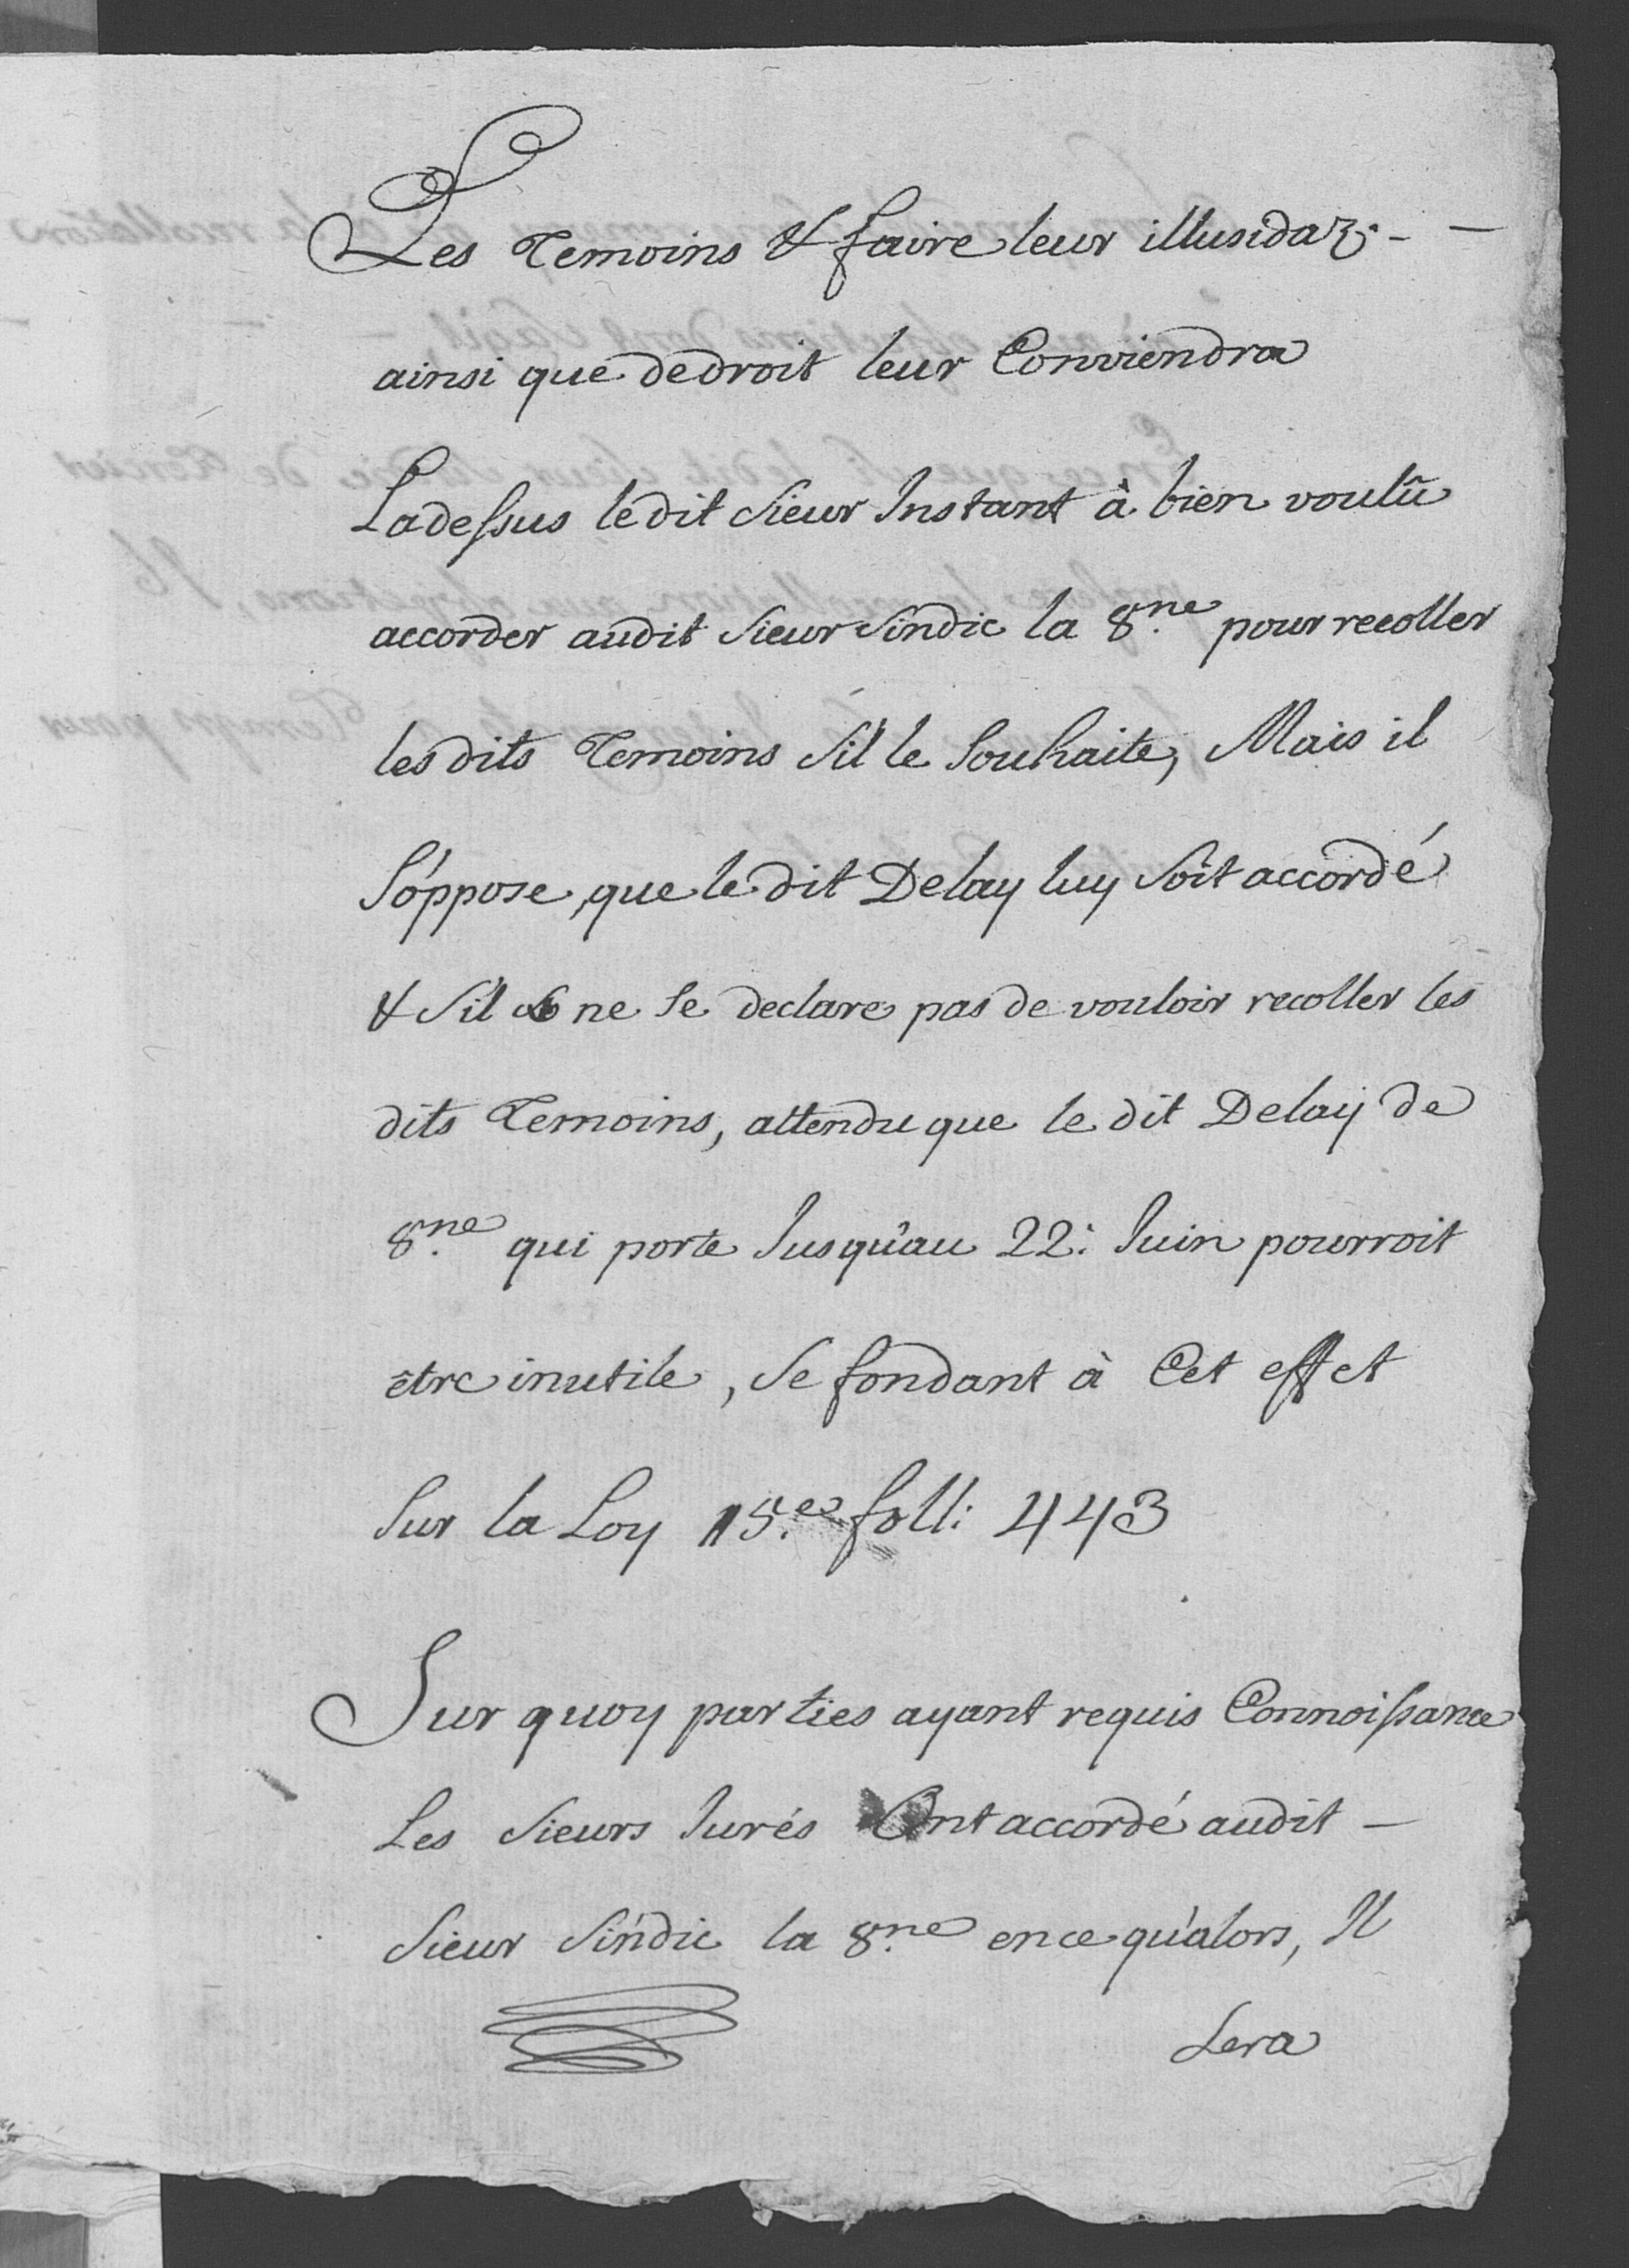 Les Temoins & faire leur illusidaz. - -
ainsi que dedroit leur Conviendra
Ladessus ledit Sieur Instant à bien voulû
accorder audit Sieur Sindic la 8.ne pour recoller
les dits Temoins S'il le Souhaite, Mais il
S'oppose, que le dit Delay luy Soit accordé
& S'il ne Se declare pas de vouloir recoller les
dits Temoins, attendu que le dit Delay de
8.ne qui porte Jusqu'au 22: Juin pourroit
être inutile, Se fondant à Cet effet
Sur la Loy 15.e foll: 443
Sur quoy parties ayant requis Connoissance
Les Sieurs Jurés Ont accordé audit -
Sieur Sindic la 8.ne ence qu'alors, Il
Sera